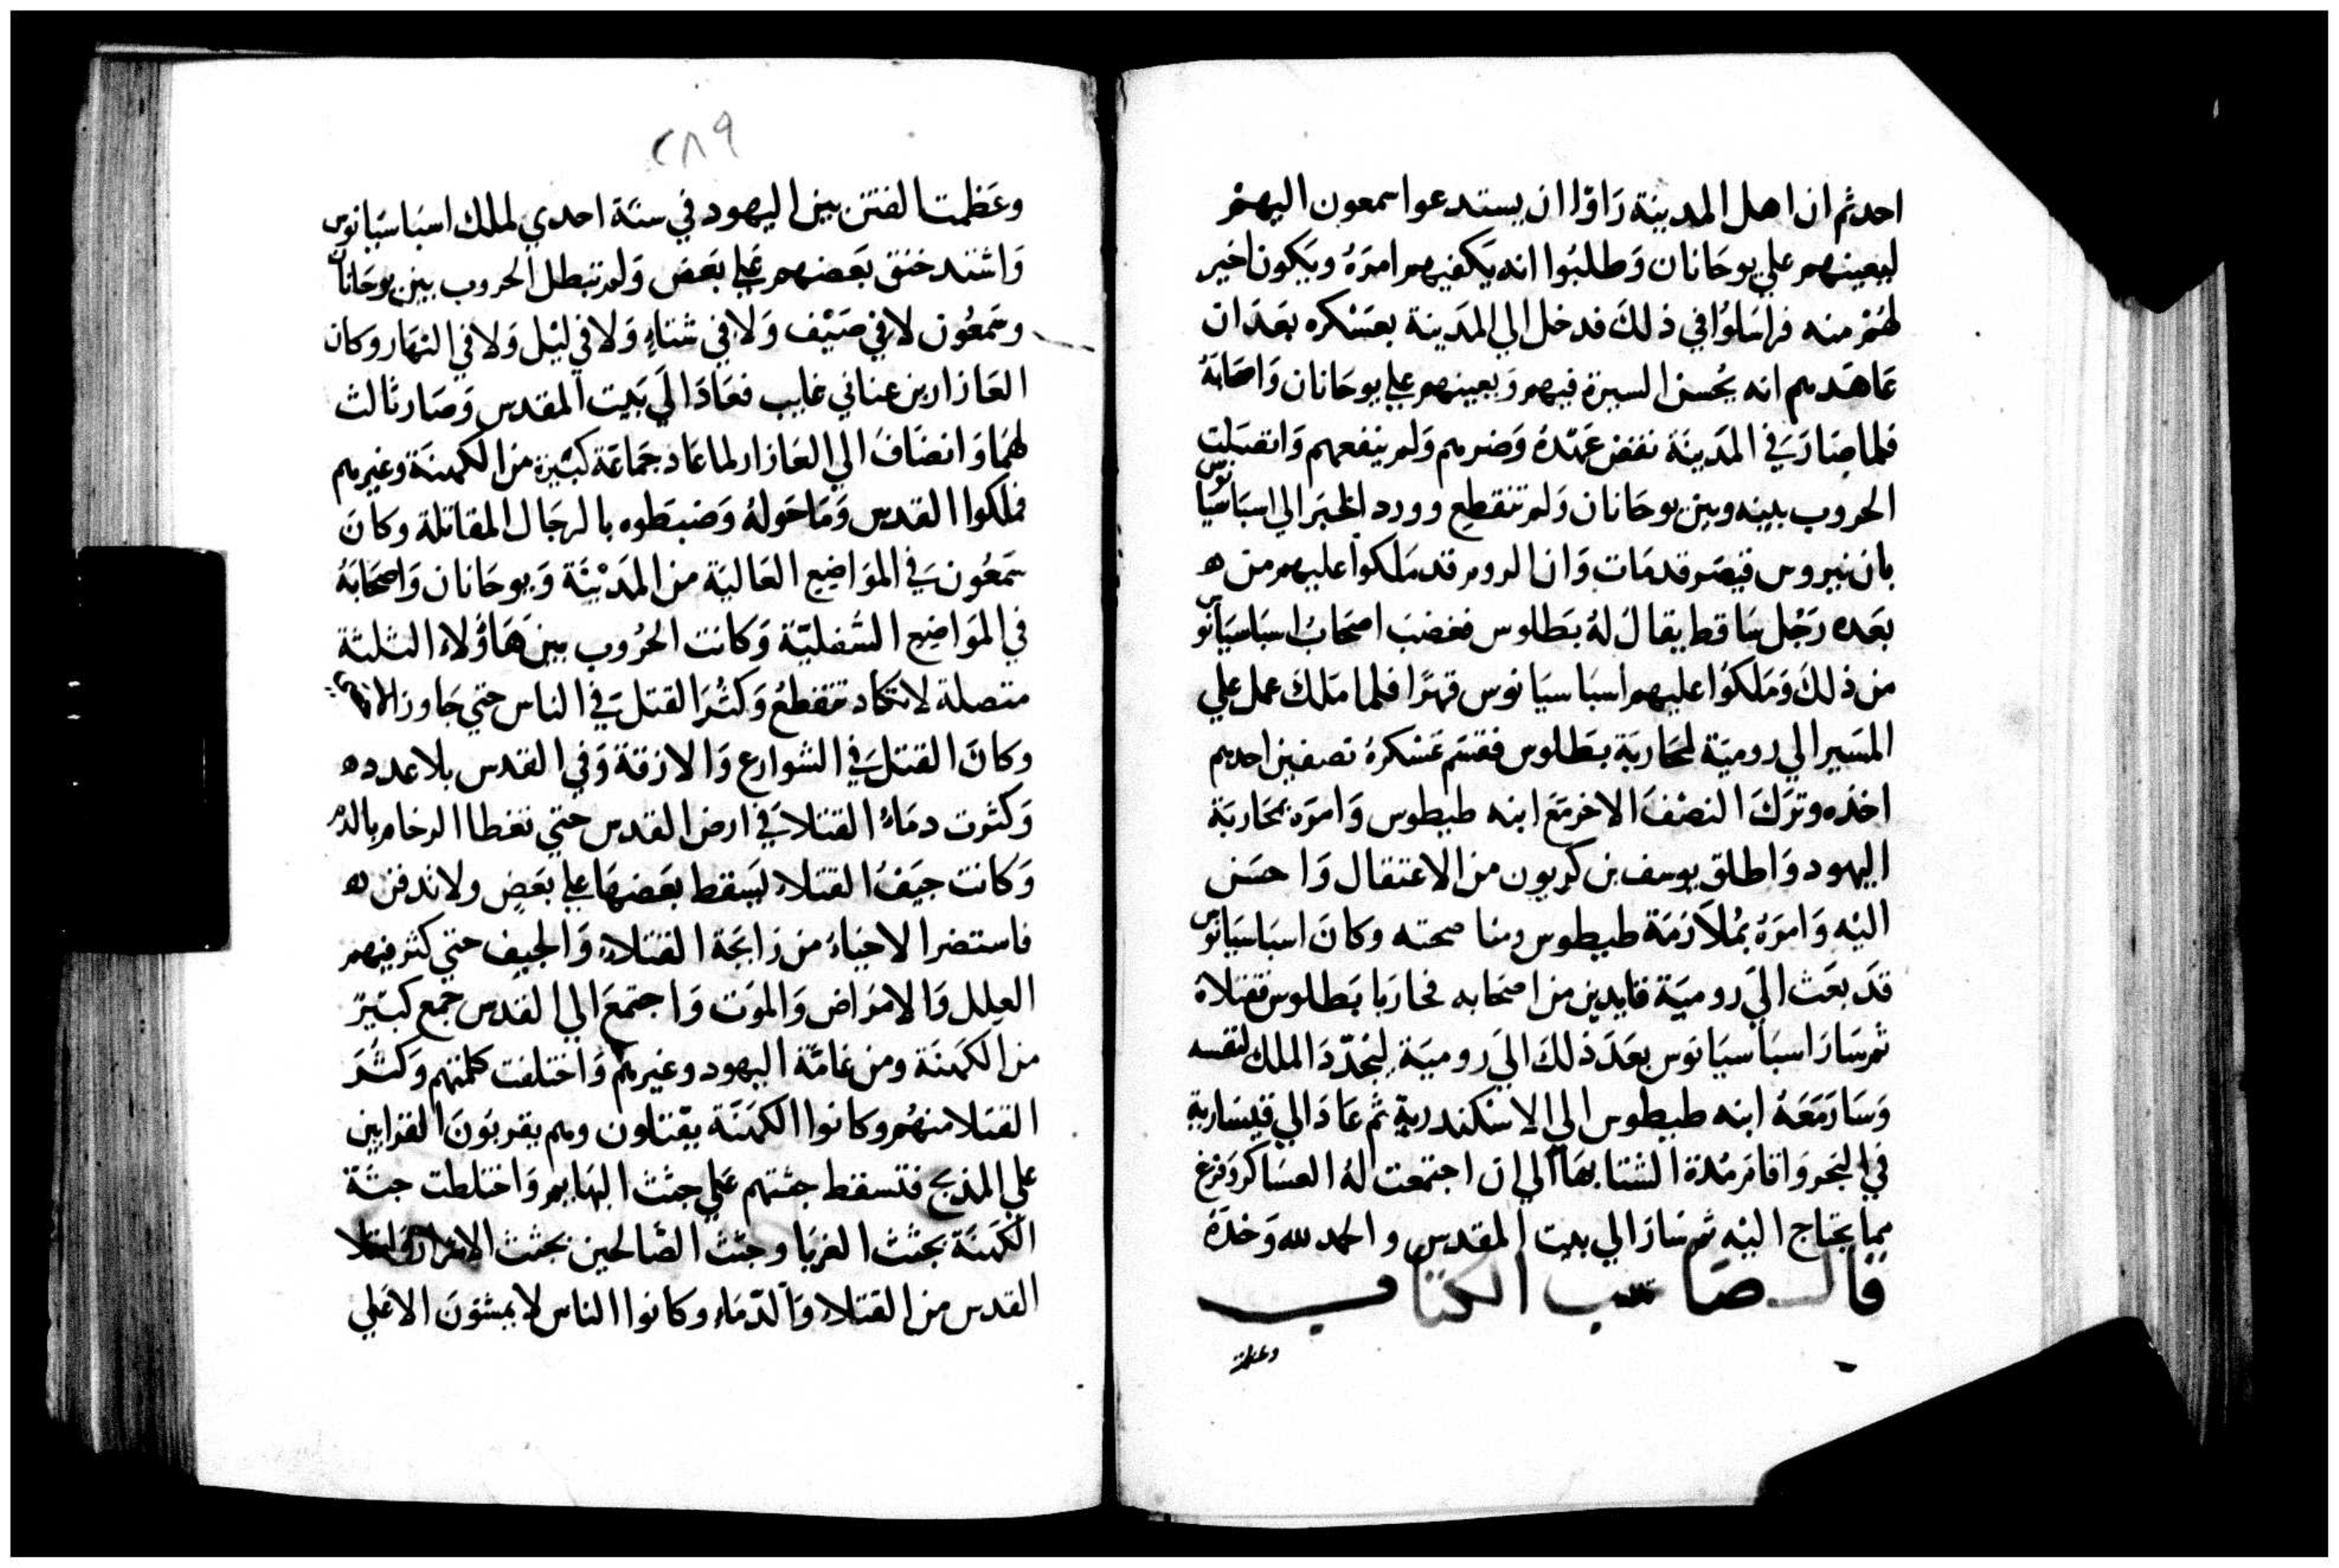 احد ثم ان اهل المدينة رَاوْا ان يستدعوا سمعون اليهمْ
ليعينهم علي يوحَانان وَطلبُوا انه يَكفيهم امرَهُ ويَكون اخير
لهُمْ منه فراسَلوُا في ذلكَ فدخل الي المدَينة بعسْكره بعَدَ ان
عَاهَدهم انه يُحسن السيرة فيهم وَيعينهم علي يوحَانان وَاصحَابهُ
فلما صَارَ في المدَينَة نقض عَهْدهُ وَضرهم وَلم ينفعهم وَاتصَلت
الحروب بينه وبين يوحَانان وَلم تنقطع وورد الخبَر الي اسبَاسيَانوس
بان نيروس قيصَر قد مَات وَان الروم قد مَلكوا عليهم من ه
بعَده رَجُل سَاقط يقالُ لهُ بطَالوس فغضبَ اصحَابُ اسبَاسيَانوس
من ذلكَ وَمَلكوُا عليهم اسبَاسيَانوس قهرًا فلما مَلكَ عمل علي
المسَير الي روميَة لمحَاربَة بطَالوس فقسَم عَسْكرهُ نصفين احدهم
اخذه وترَكَ النصْفَ الاخر مَعَ ابنه طيطوس وَامرَه بمحَاربَة
اليهود وَاطلق يوسف بن كريون من الاعتقال وَاحسَن
اليْه وَامرَهُ بمُلاَزمَة طيطوس ومنا صحته وكانَ اسبَاسيَانوس
قدَ بعَث اليَ روميَة قايدين من اصحَابه فحَارَبَا بَطالوس فقتلاهُ
ثم سَارَ اسبَاسيَانوس بعَدَ ذلكَ اليَ روميَة ليُجدّدَ الملك لنفسه
وَسَارَ مَعَهُ ابنه طيطوس الي الاسْكندرية ثم عَادَ الي قيسَارية
في البَحر وَاقامَ مُدة الشتا بهَا الي ان اجتمعت لهُ العسَاكر وَفرغ
مما يحتاج اليْه ثم سَارَ الي بيت المقدس والحمد لله وَحْدَهُ
قال صَاحب الكتاب
وعظمت
٢٨٩
وعَظمت الفتن بين اليهود في سنَة احدي لملك اسبَاسيَانوس
وَاشتد خنق بَعَضهم عَلي بَعَض وَلم تبطل الحروب بين يوحَانان
وسَمعُون لا في صَيْف وَلا في شتاءٍ وَلا في ليْل وَلا في النهَار وكان
العَازار بن عناني غايب فعَادَ الَي بَيت المقدس وَصَار ثالث
لهمَا وَانضَافُ الي العَازار لما عَاد جمَاعَة كبيَرة من الكهنَة وغيرهم
فملَكوا القدس وَمَا حَولهُ وَضبَطوه بالرجَال المقاتلة وكانَ
سَمعُون في المَواضِع العَاليَة من المَديْنَة وَيوحَانان وَاصحَابَهُ
في المَواضِع السُفليّة وَكانت الحُروب بين هَاوُلاء الثلثة
متصلة لا تكاد تنقطعُ وَكثُرَ القتل في الناس حتي جَاوز الاحصَي
وكانَ القتل في الشوارع وَالازقة وَفي القدس بلا عدد ه
وَكثرت دمَاءُ القتلا في ارض القدس حتي تغطا الرخام بالدم
وَكانت جيَفُ القتلاء يَسقط بعَضهَا علي بعَضٍ ولا تدفن ه
فاستضر الاحيَاءُ من رَايحَة القتلاءِ وَالجيف حتي كثر فيهم
العِلل وَالامرَاض وَالموَت وَاجتمَع الي القدس جمع كبيرٌ
من الكهَنَة ومن عَامّة اليهود وغيرهم وَاختلفت كلمتهم وَكثُرَ
القتلا منهُم وكانوا الكهَنَة يقتلون وهم يقربوَنَ القرابين
علي المذبح فتسقط جثتهم عَلي جثث البهَايم وَاختلطت جثَة
الكَهنَة بجثث الغربَا وجثث الصَّالحين بجثث الاشرار وَامتلا
القدس من القتلاءِ وَالدّمَاء وكانوا الناس لا يمشوَنَ الا عَلي